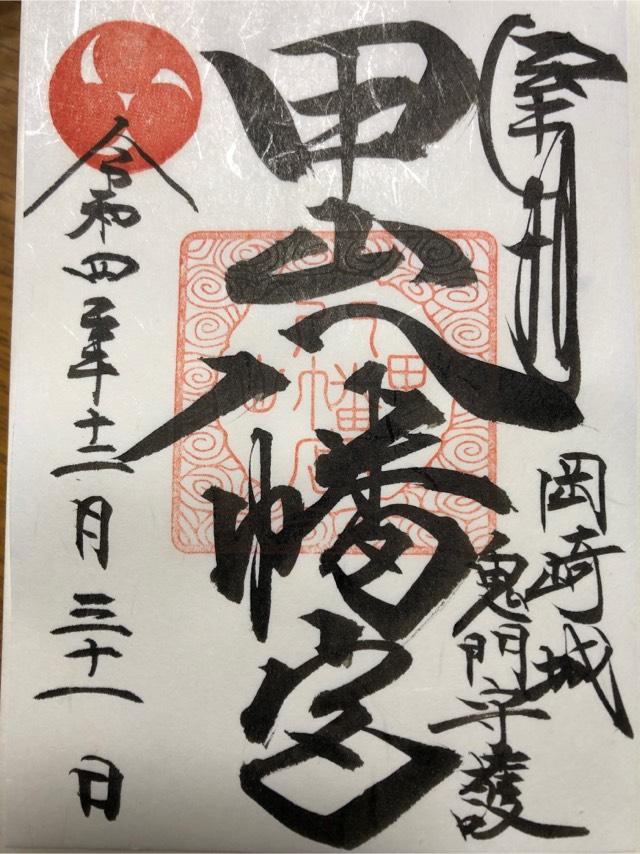 奉拝
岡崎城
鬼門守護
甲山八幡宮
令和四年十二月三十一日